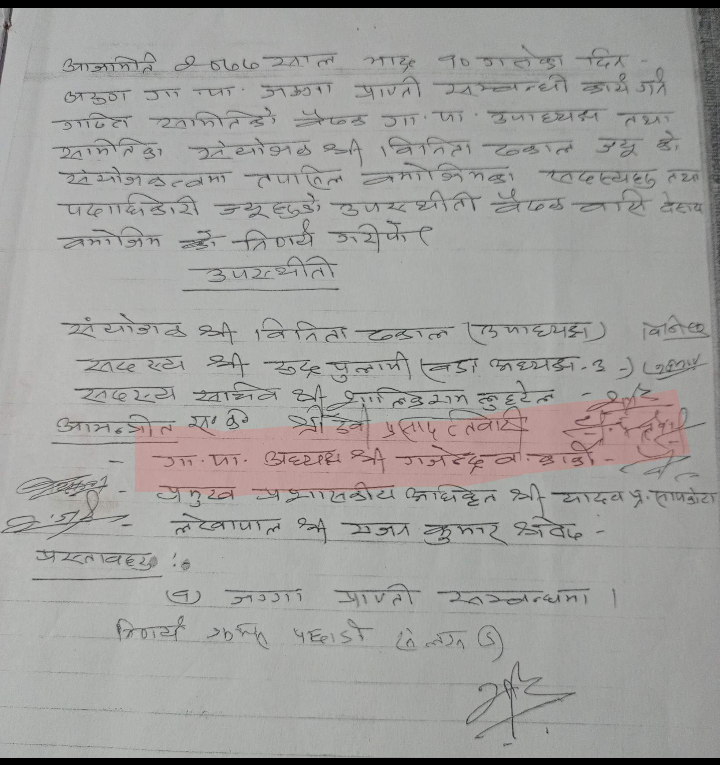 आजमिति २०७७ साल भाद्र १० गतेका दिन -
अरुण गा.पा. जग्गा प्राप्ती सम्बन्धी कार्य गर्न
गठित समितिको बैठक गा.पा. उपाध्यक्ष तथा
समितिका संयोजक श्री विनिता ढकाल ज्यू को
संयोजकत्वमा तपसिल बमोजिमका सदस्यहरु तथा
पदाधिकारी ज्यूहरुको उपस्थीती बैठक बसि देहाय
बमोजिम को निर्णय गरीयो
उपस्थीती
संयोजक श्री विनिता ढकाल (उपाध्यक्ष)
सदस्य श्री रुद्र पुलामी (वडा अध्यक्ष-३-)
सदस्य सचिव श्री शालिकराम लुइटेल -
आमन्त्रीत स.को. श्री देवी प्रसाद तिवारी
- गा.पा. अध्यक्ष श्री गजेन्द्र ब. कार्की -
- प्रमुख प्रशासकीय अधिकृत श्री यादव प्र. सापकोटा
- लेखापाल श्री राजन कुमार श्रेष्ठ -
प्रस्तावहरु :-
(१) जग्गा प्राप्ती सम्बन्धमा ।
निर्णय